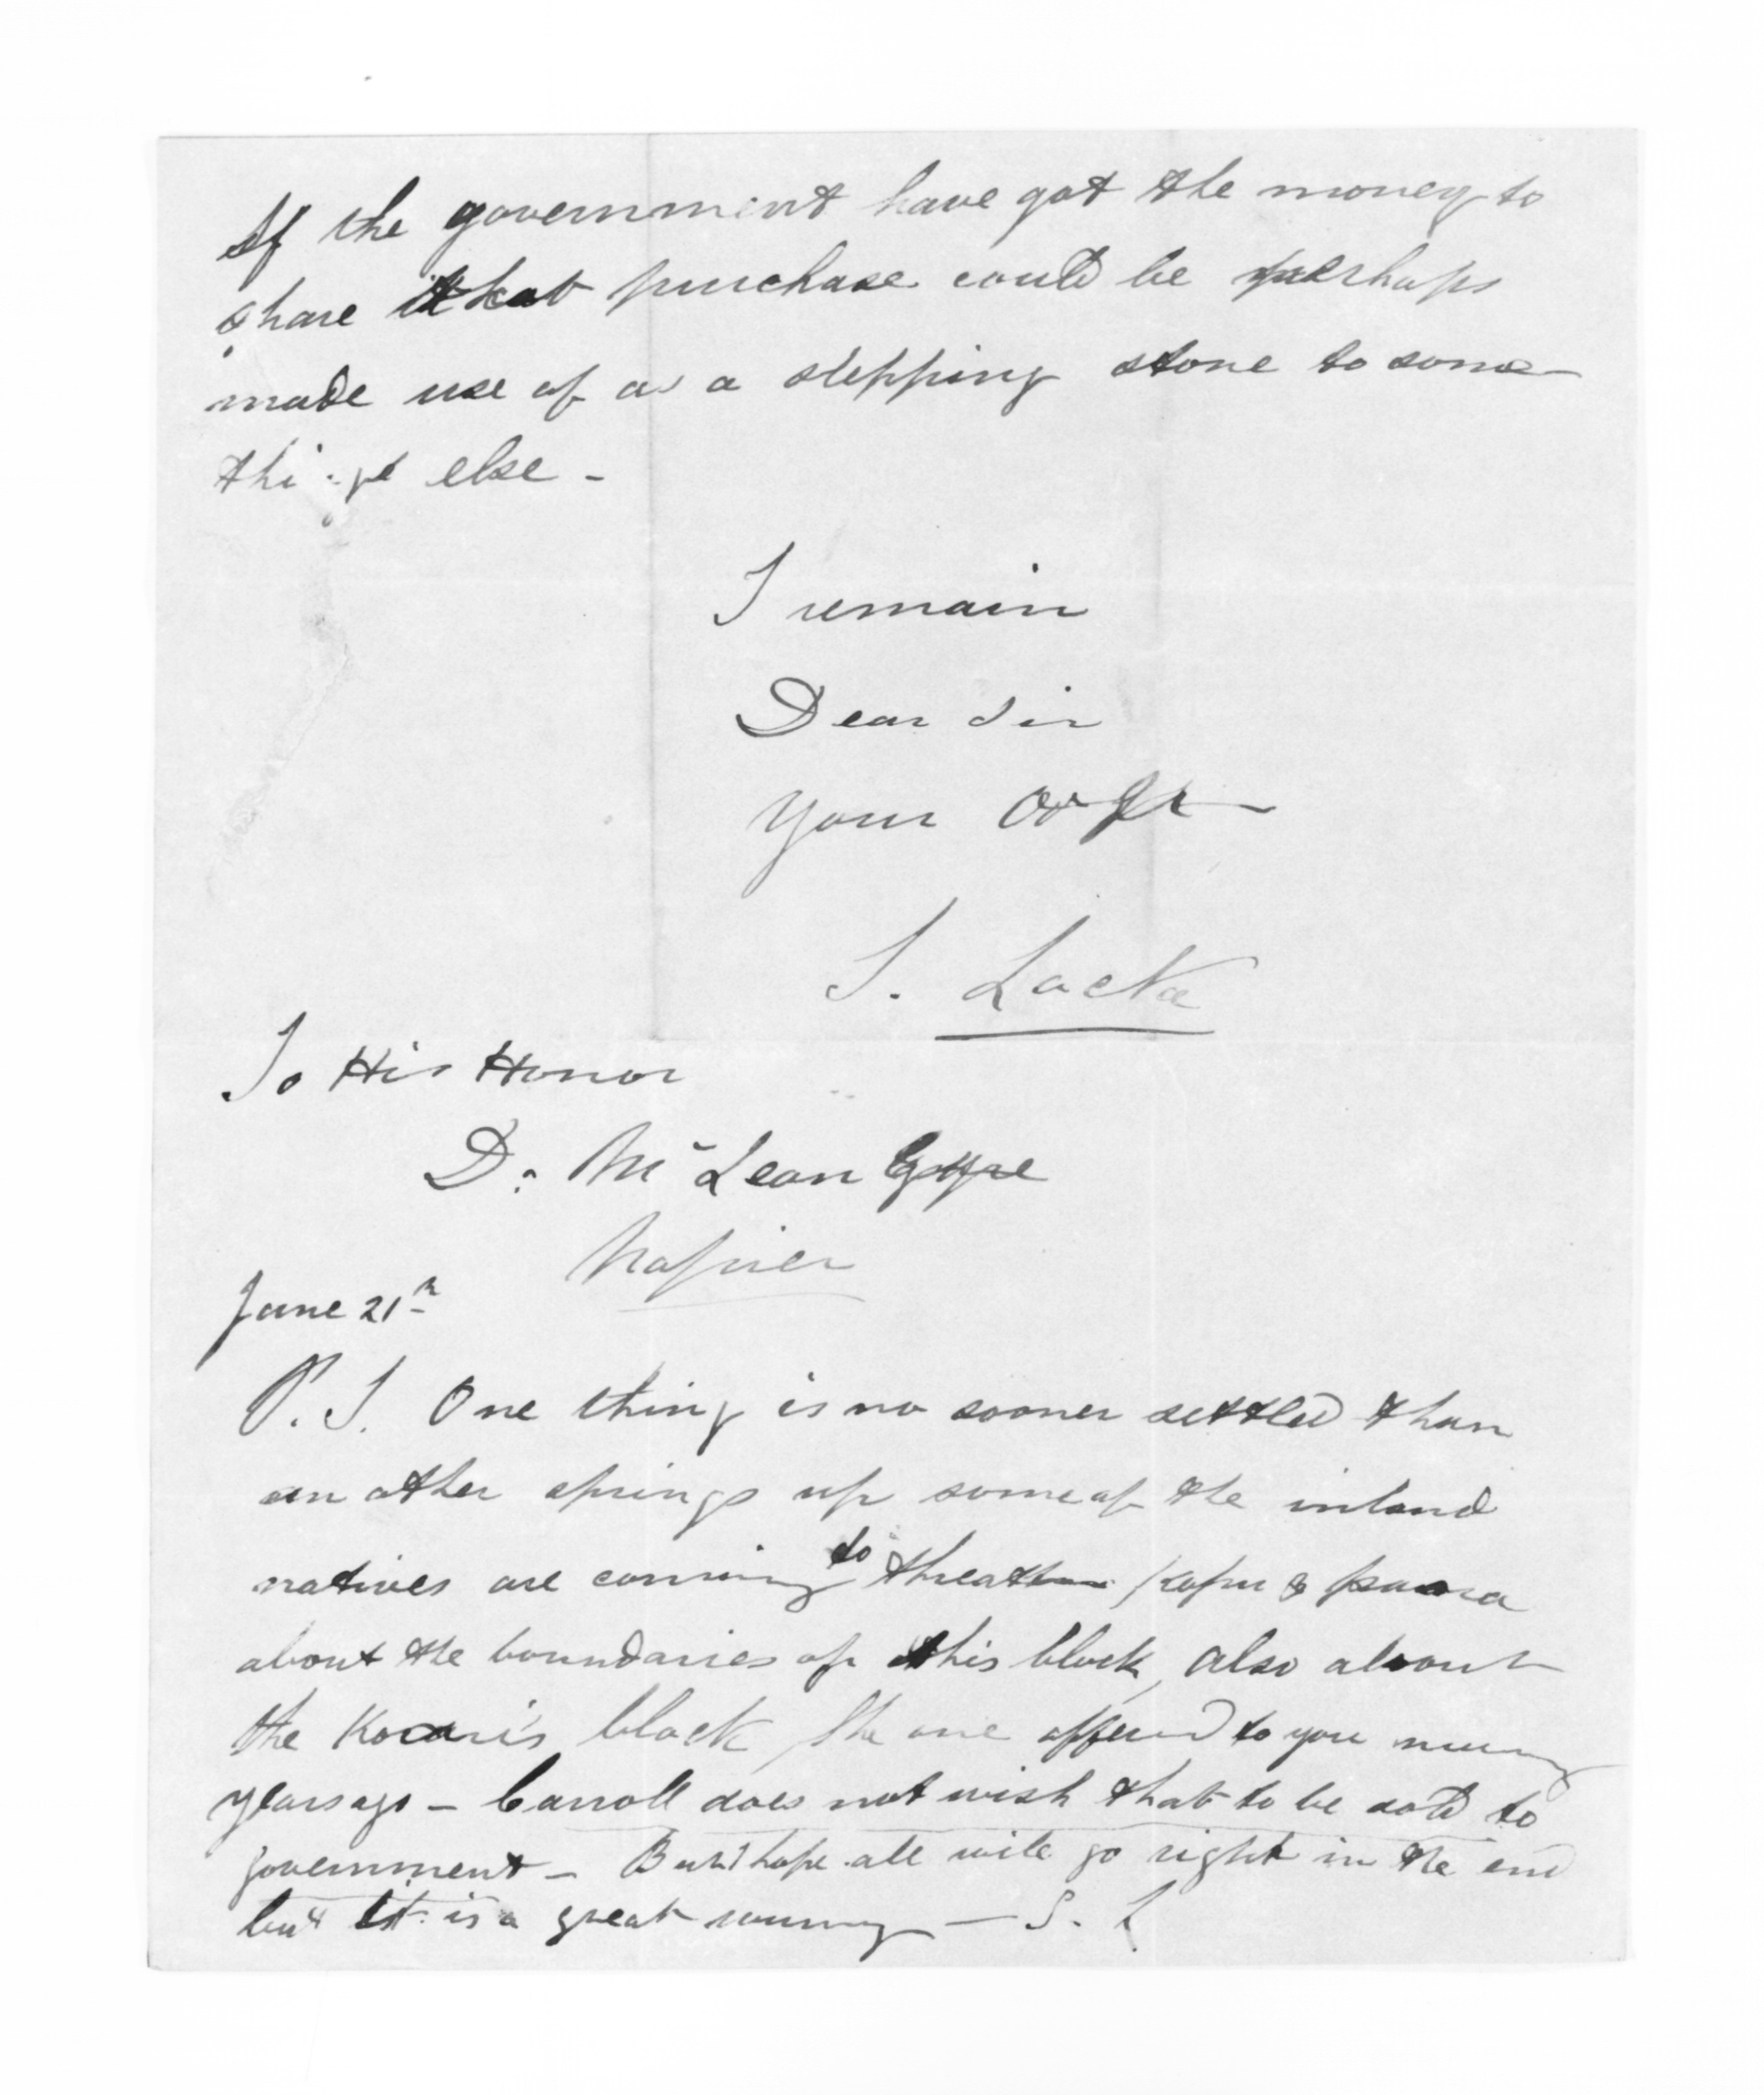 If the government have got the money to
share that purchase could be perhaps
made use of as a stepping stone to some
thing else -
I remain
Dear Sir
Your
S. Locke
To His Honor
D. McLean Esqre
Napier
June 21st
P.S. One thing is no sooner settled than
an other springs up some of the inland
natives are coming to threaten Kopu & paora
about the boundaries of this block, also about
the block the one offered to you many
years ago - Carroll does not wish that to be sold to
government - But I hope all will go right in the end
but it is a great worry - S. L